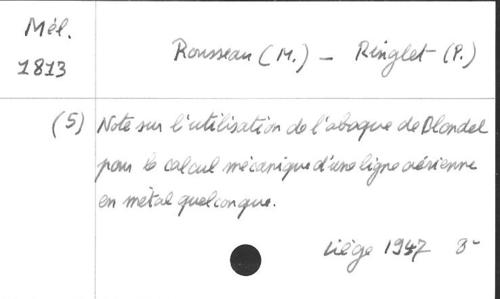 Mél.
1813
Rousseau (M.) – Ringlet (P.)
(5) Note sur l'utilisation de l'abaque de Blondel
pour le calcul mécanique d'une ligne aérienne
en métal quelconque.
Liège 1947 8-